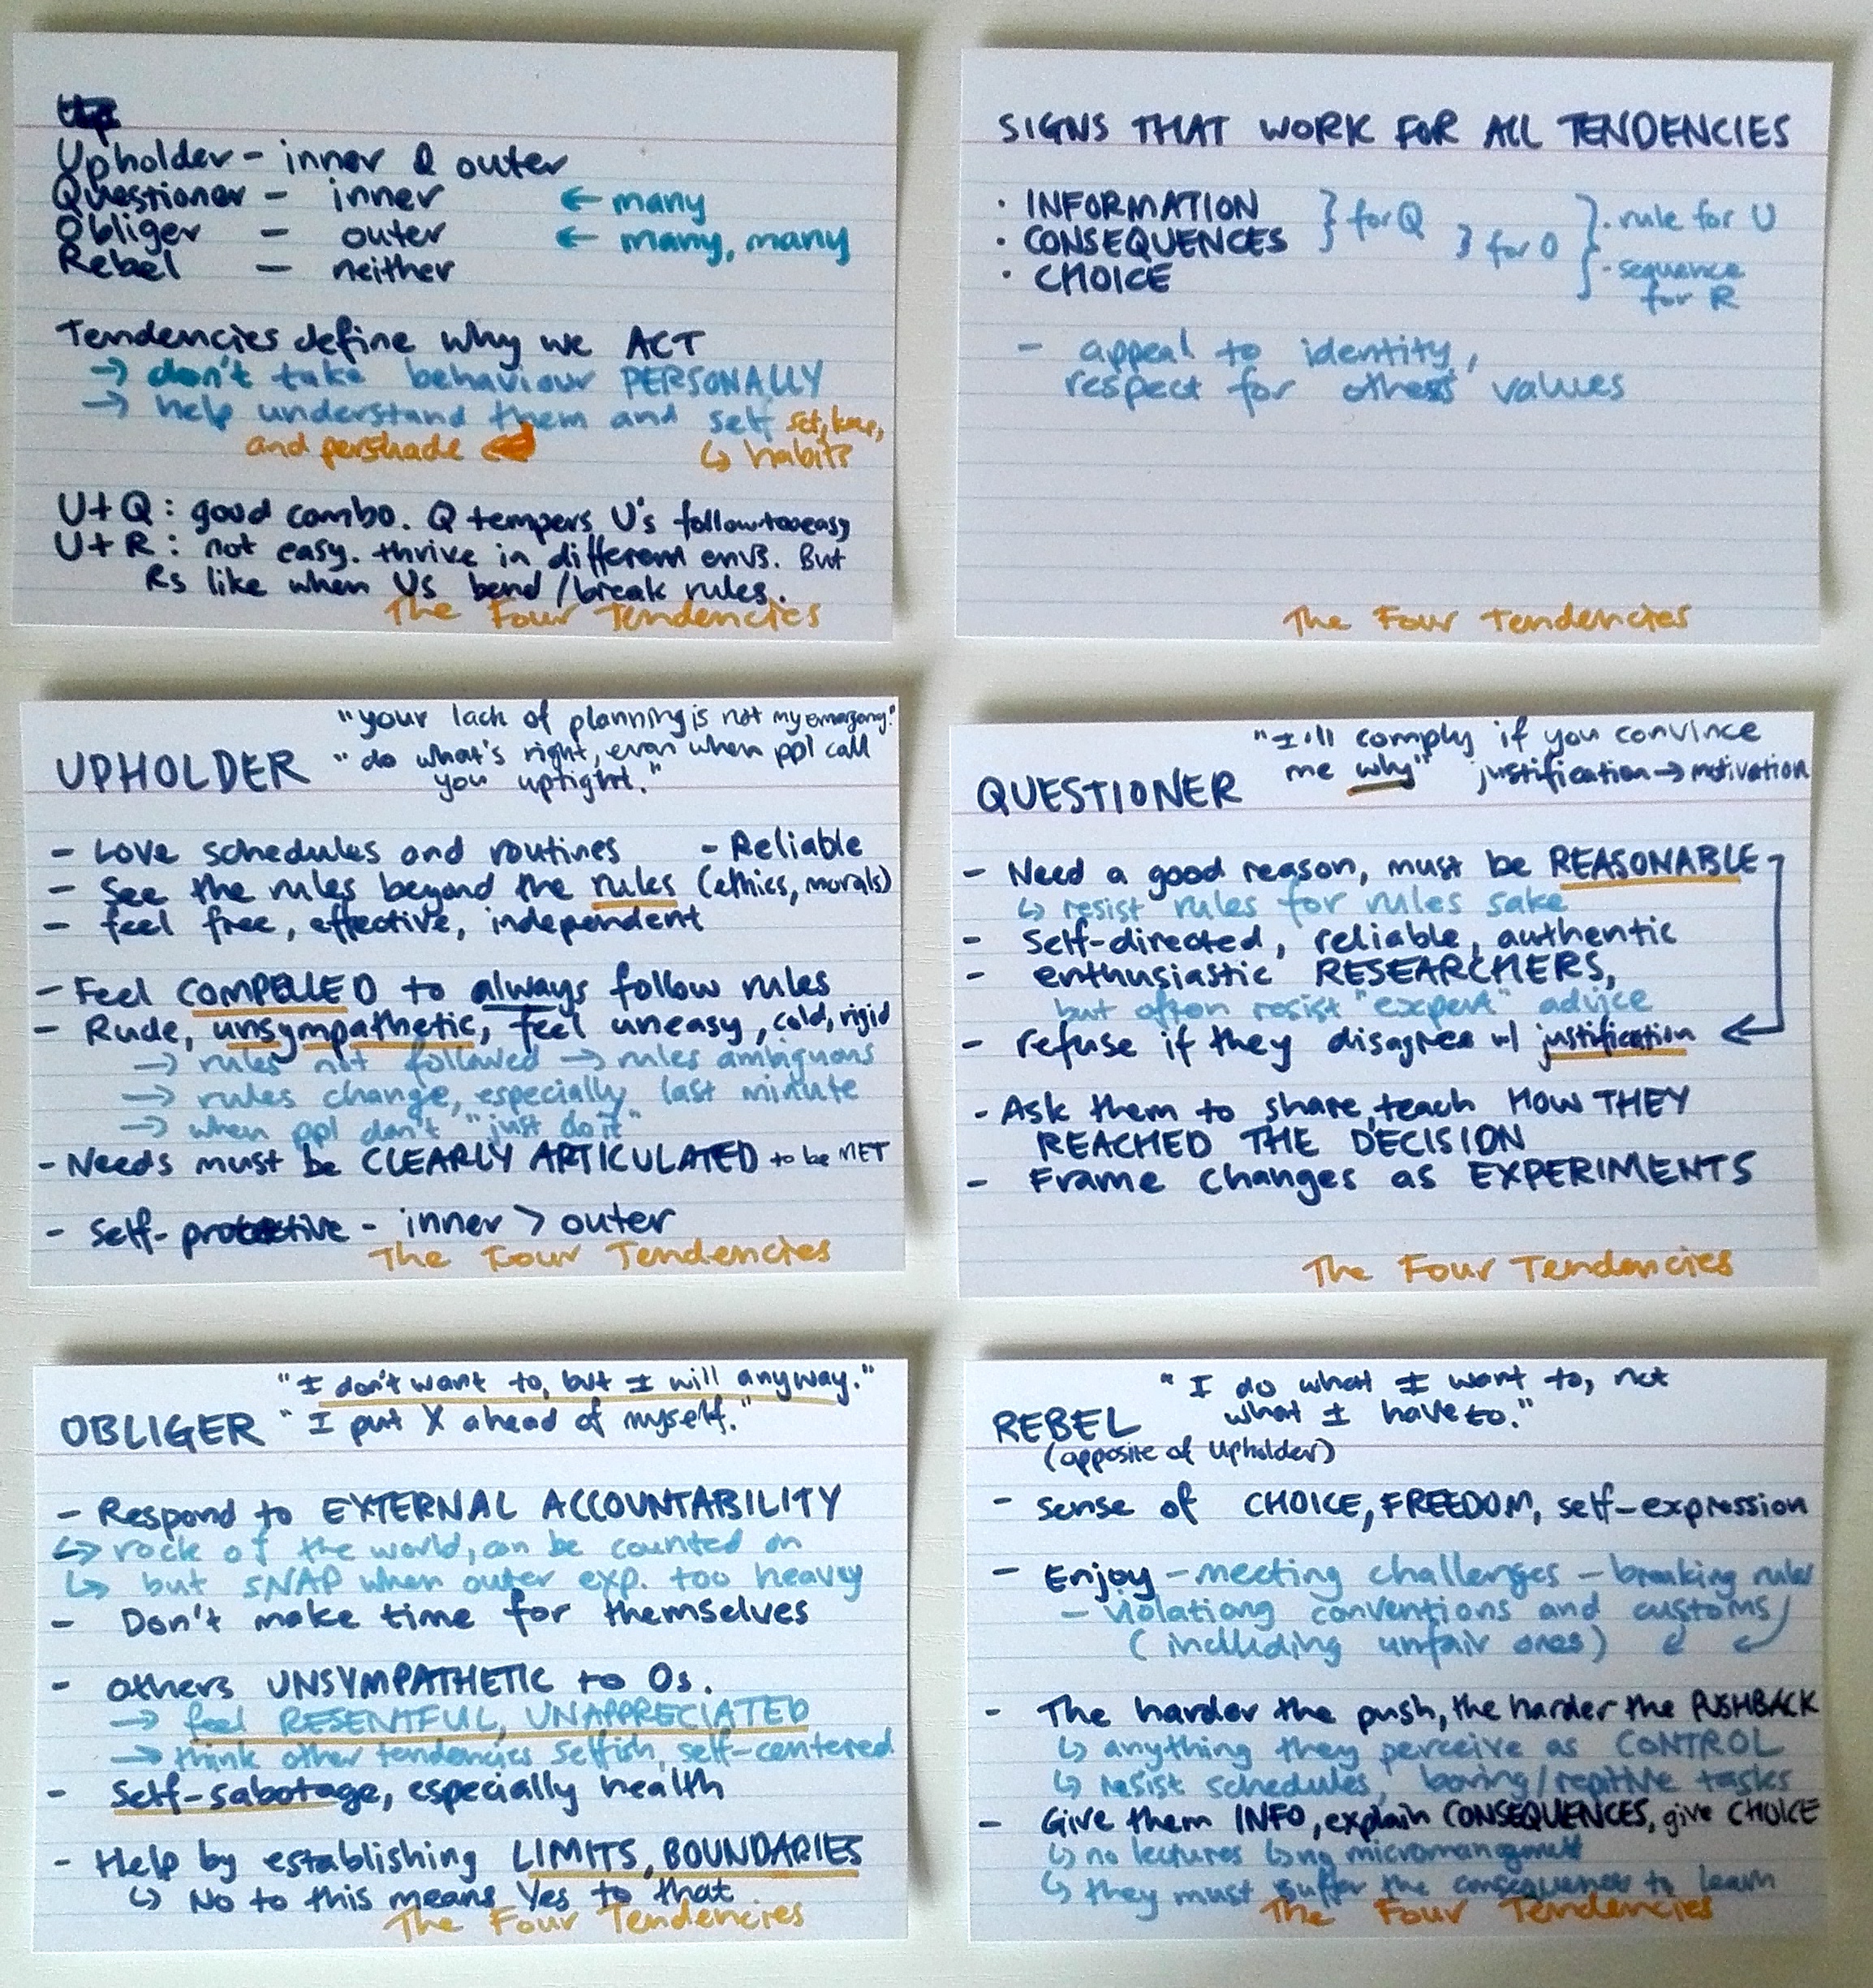 Upholder - inner & outer
Questioner - inner ← many
Obliger - outer ← many, many
Rebel - neither
Tendencies define why we ACT
→ don't take behaviour PERSONALLY
→ help understand them and self set, keep,
and pershade ↳ habits
U+Q: good combo. Q tempers U's follow-too-easy
U+R: not easy. thrive in different envs. But
Rs like when Us bend/break rules.
The Four Tendencies
SIGNS THAT WORK FOR ALL TENDENCIES
· INFORMATION } for Q } · rule for U
· CONSEQUENCES } for O
· CHOICE · sequence
for R
- appeal to identity,
respect for others values
The Four Tendencies
"your lack of planning is not my emergency."
UPHOLDER "do what's right, even when ppl call
you uptight."
- Love schedules and routines - Reliable
- See the rules beyond the rules (ethics, morals)
- feel free, effective, independent
- Feel COMPELLED to always follow rules
- Rude, unsympathetic, feel uneasy, cold, rigid
→ rules not followed → rules ambiguous
→ rules change, especially last minute
→ when ppl don't "just do it"
- Needs must be CLEARLY ARTICULATED to be MET
- Self-protective - inner > outer
The Four Tendencies
"I'll comply if you convince
QUESTIONER me why" justification → motivation
- Need a good reason, must be REASONABLE
↳ resist rules for rules sake
- Self-directed, reliable, authentic
- enthusiastic RESEARCHERS,
but often resist "expert" advice
- refuse if they disagree w/ justification
- Ask them to share, teach HOW THEY
REACHED THE DECISION
- Frame changes as EXPERIMENTS
The Four Tendencies
"I don't want to, but I will anyway."
OBLIGER "I put X ahead of myself."
- Respond to EXTERNAL ACCOUNTABILITY
↳ rock of the world, can be counted on
↳ but SNAP when outer exp. too heavy
- Don't make time for themselves
- others UNSYMPATHETIC to Os.
→ feel RESENTFUL, UNAPPRECIATED
→ think other tendencies selfish, self-centered
- Self-sabotage, especially health
- Help by establishing LIMITS, BOUNDARIES
↳ No to this means Yes to that
The Four Tendencies
"I do what I want to, not
REBEL what I have to."
(opposite of Upholder)
- sense of CHOICE, FREEDOM, self-expression
- Enjoy - meeting challenges - breaking rules
- violationg conventions and customs
(including unfair ones)
- The harder the push, the harder the PUSHBACK
↳ anything they perceive as CONTROL
↳ resist schedules, boring/repitive tasks
- Give them INFO, explain CONSEQUENCES, give CHOICE
↳ no lectures ↳ no micromanagement
↳ they must suffer the consequences to learn
The Four Tendencies